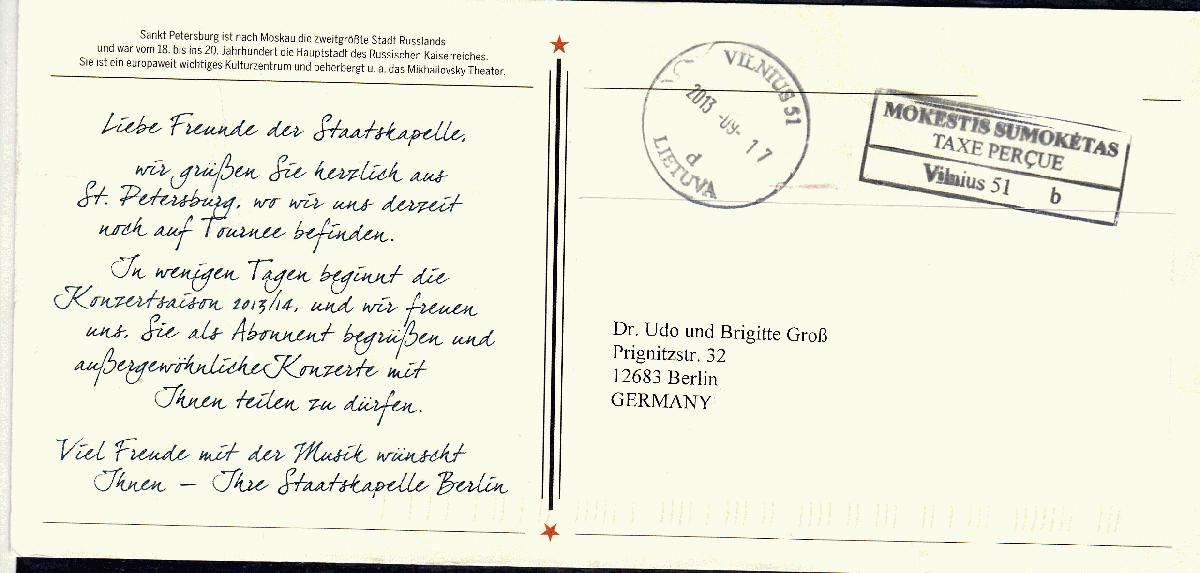 Sankt Petersburg ist nach Moskau die zweitgrößte Stadt Russlands
und war vom 18. bis ins 20. Jahrhundert die Hauptstadt des Russischen Kaiserreiches.
Sie ist ein europaweit wichtiges Kulturzentrum und beherbergt u. a. das Mikhailovsky Theater.
Liebe Freunde der Staatskapelle,
wir grüßen Sie herzlich aus
St. Petersburg, wo wir uns derzeit
noch auf Tournee befinden.
In wenigen Tagen beginnt die
Konzertsaison 2013/14, und wir freuen
uns, Sie als Abonnent begrüßen und
außergewöhnliche Konzerte mit
Ihnen teilen zu dürfen.
Viel Freude mit der Musik wünscht
Ihnen – Ihre Staatskapelle Berlin
VILNIUS 51
2013-09-17
d
LIETUVA
MOKESTIS SUMOKĖTAS
TAXE PERÇUE
Vilnius 51 b
Dr. Udo und Brigitte Groß
Prignitzstr. 32
12683 Berlin
GERMANY